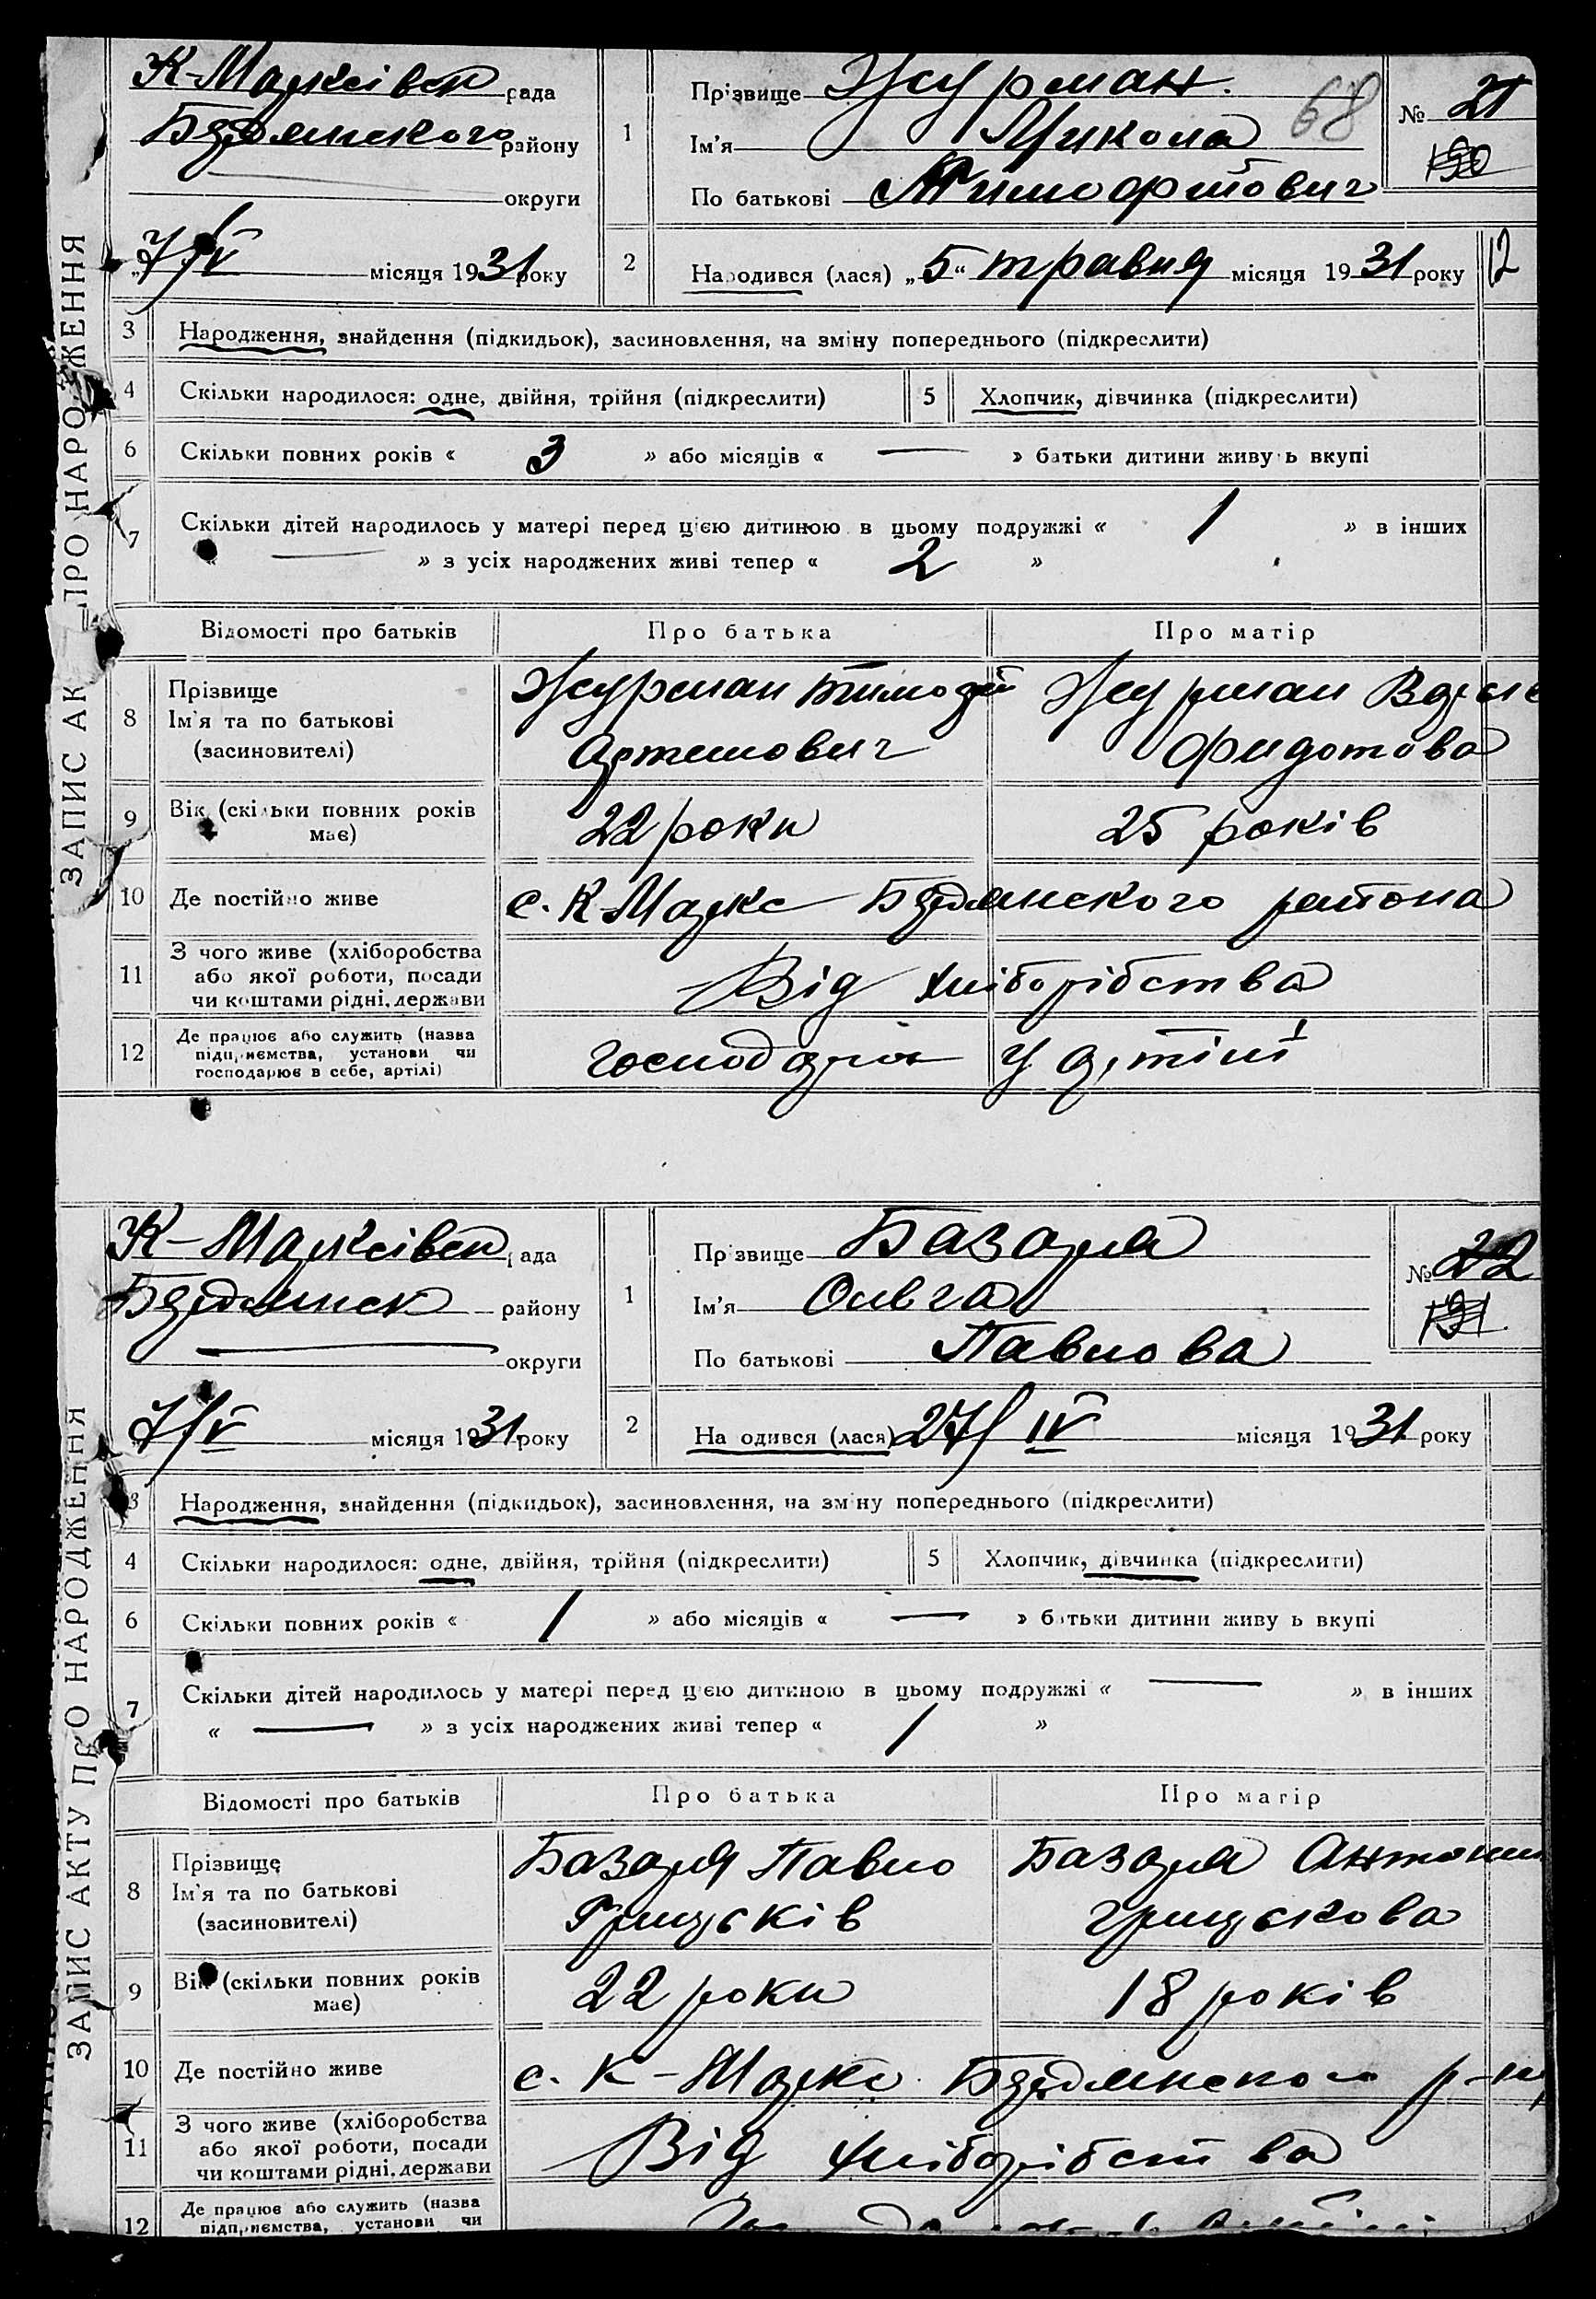 ЗАПИС АК ПРО НАРОДЖЕННЯ
К-Марксівск рада
Бердянского району
округи
7/V місяця 1931 року
1
Прізвище Журман.
Ім'я Микола
По батькові Тимофійович
68
№ 21
130
2
Народився (лася) „5“ травня місяця 1931 року
12
3 Народження, знайдення (підкидьок), засиновлення, на зміну попереднього (підкреслити)
4 Скільки народилося: одне, двійня, трійня (підкреслити) 5 Хлопчик, дівчинка (підкреслити)
6 Скільки повних років « 3 » або місяців « — » батьки дитини живуть вкупі
7 Скільки дітей народилось у матері перед цією дитиною в цьому подружжі « 1 » в інших
« — » з усіх народжених живі тепер « 2 »
Відомості про батьків Про батька Про матір
8 Прізвище Ім'я та по батькові (засиновителі)
Журман Тимофій Артемович
Журман Фидотова
9 Вік (скільки повних років має) 22 роки 25 років
10 Де постійно живе с. К-Маркс Бердянского района
11 З чого живе (хліборобства або якої роботи, посади чи коштами рідні, держави Від хліборібства
12 Де працює або служить (назва підприємства, установи чи господарює в себе, артілі) господарює у артілі
ЗАПИС АКТУ ПРО НАРОДЖЕННЯ
К-Марксівск рада
Бердянск району
округи
7/V місяця 1931 року
1
Прізвище Базаря
Ім'я Ольга
По батькові Павлова
№ 22
131
2
Народився (лася) 27/IV місяця 1931 року
3 Народження, знайдення (підкидьок), засиновлення, на зміну попереднього (підкреслити)
4 Скільки народилося: одне, двійня, трійня (підкреслити) 5 Хлопчик, дівчинка (підкреслити)
6 Скільки повних років « 1 » або місяців « — » батьки дитини живуть вкупі
7 Скільки дітей народилось у матері перед цією дитиною в цьому подружжі « — » в інших
« — » з усіх народжених живі тепер « 1 »
Відомості про батьків Про батька Про матір
8 Прізвище Ім'я та по батькові (засиновителі)
Базаря Павло Грицьків
Базаря Антони Грицькова
9 Вік (скільки повних років має) 22 роки 18 років
10 Де постійно живе с. К-Маркс Бердянского р-н
11 З чого живе (хліборобства або якої роботи, посади чи коштами рідні, держави Від хліборібства
12 Де працює або служить (назва підприємства, установи чи